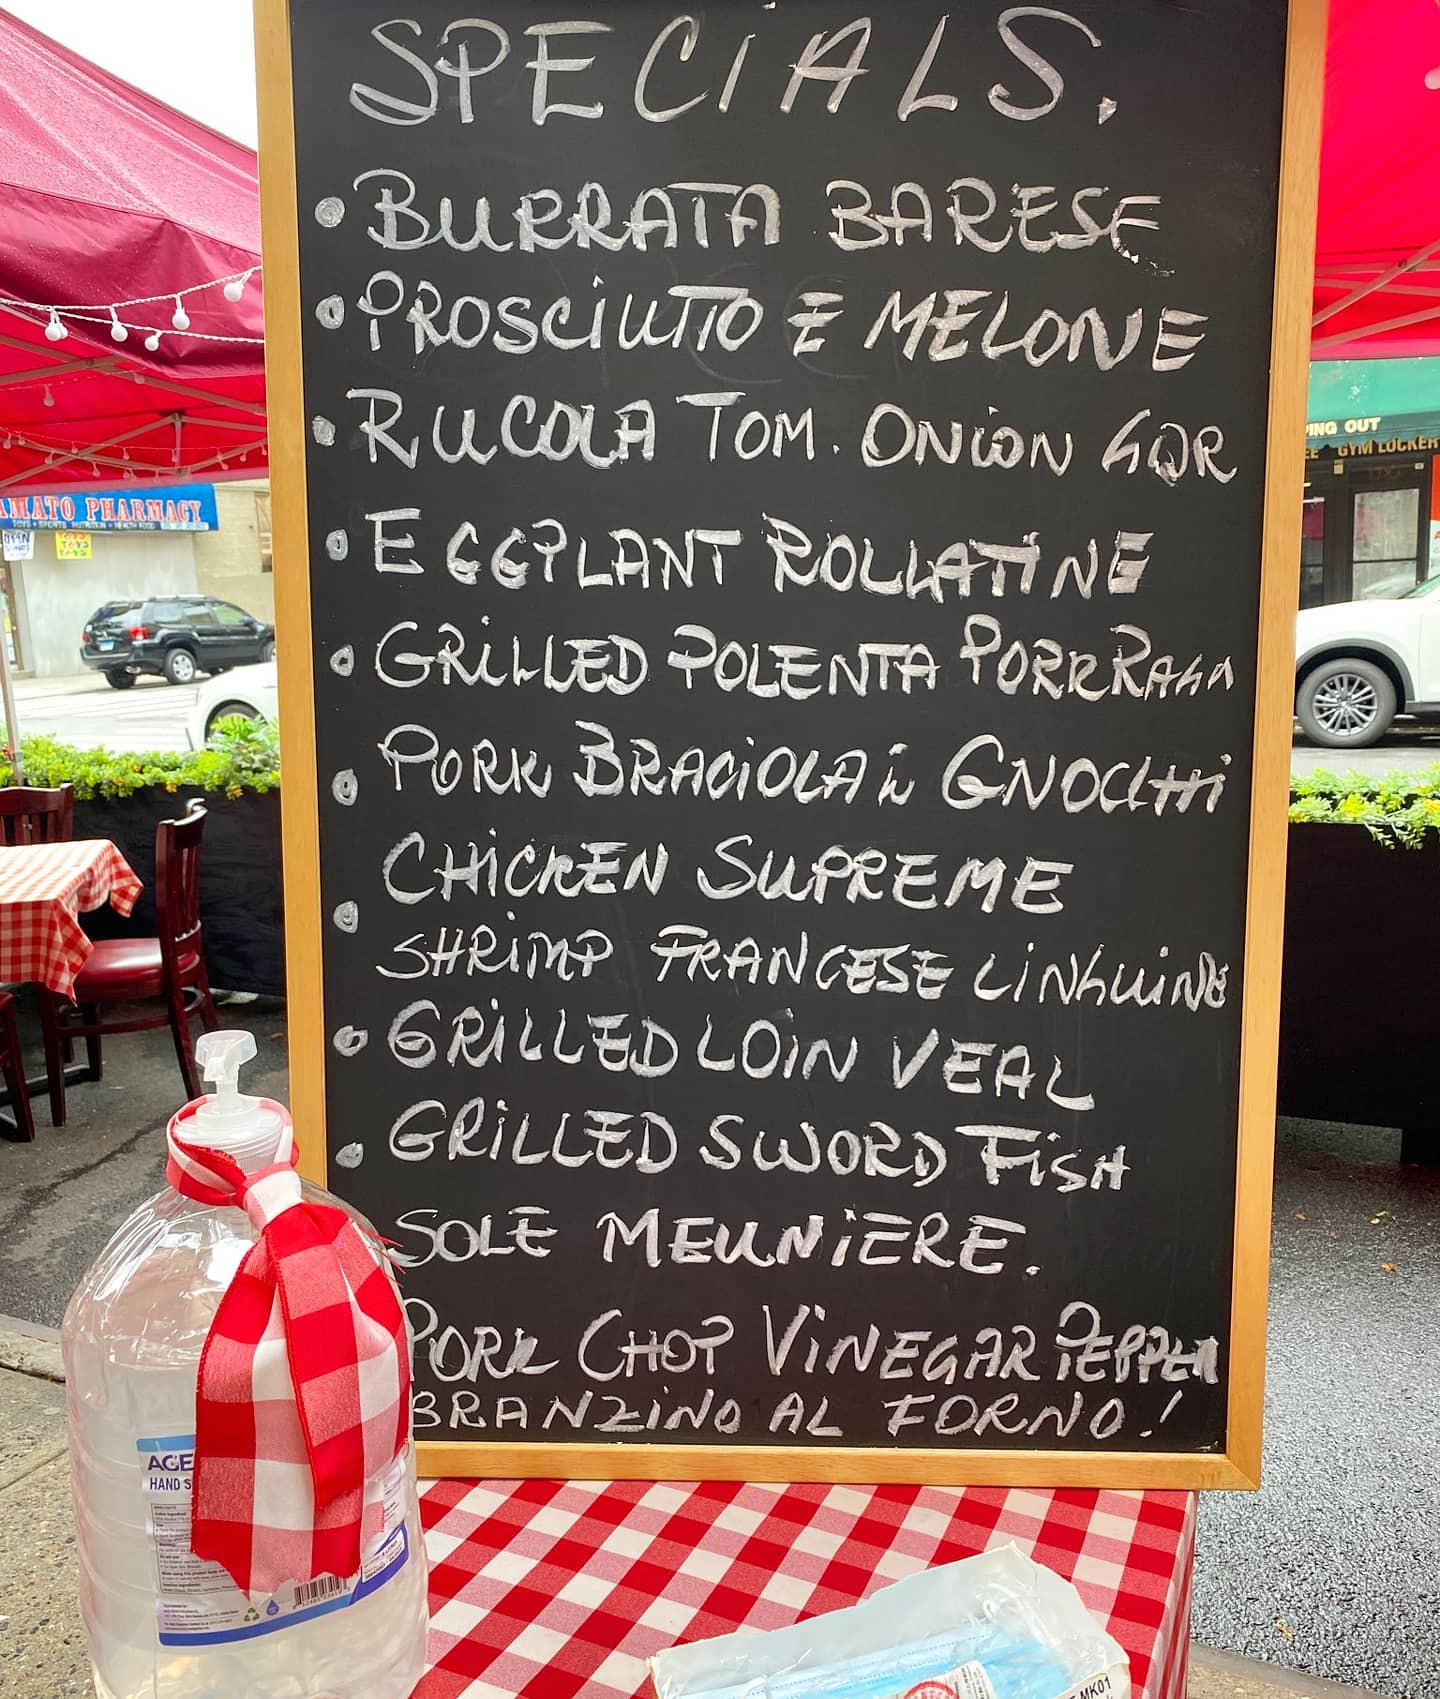 SPECiALS.
• BURRATA BARESE
• PROSCiUTTO E MELONE
• RUCOLA TOM. ONiON GOR
• EGGPLANT ROLLATiNE
• GRiLLED POLENTA
• PORK BRACiOLA i GNOCCHi
CHiCKEN SUPREME
• SHRiMP FRANCESE LiNGUiNE
• GRiLLED LOiN VEAL
• GRiLLED SWORD FiSH
SOLE MEUNiERE.
PORK CHOP ViNEGAR PEPPER
BRANZiNO AL FORNO!
AMATO PHARMACY
TOYS • SPORTS NUTRITION • HEALTH FOOD
OPEN
PING OUT
GYM LOCKER
AGE
HAND S
MK01